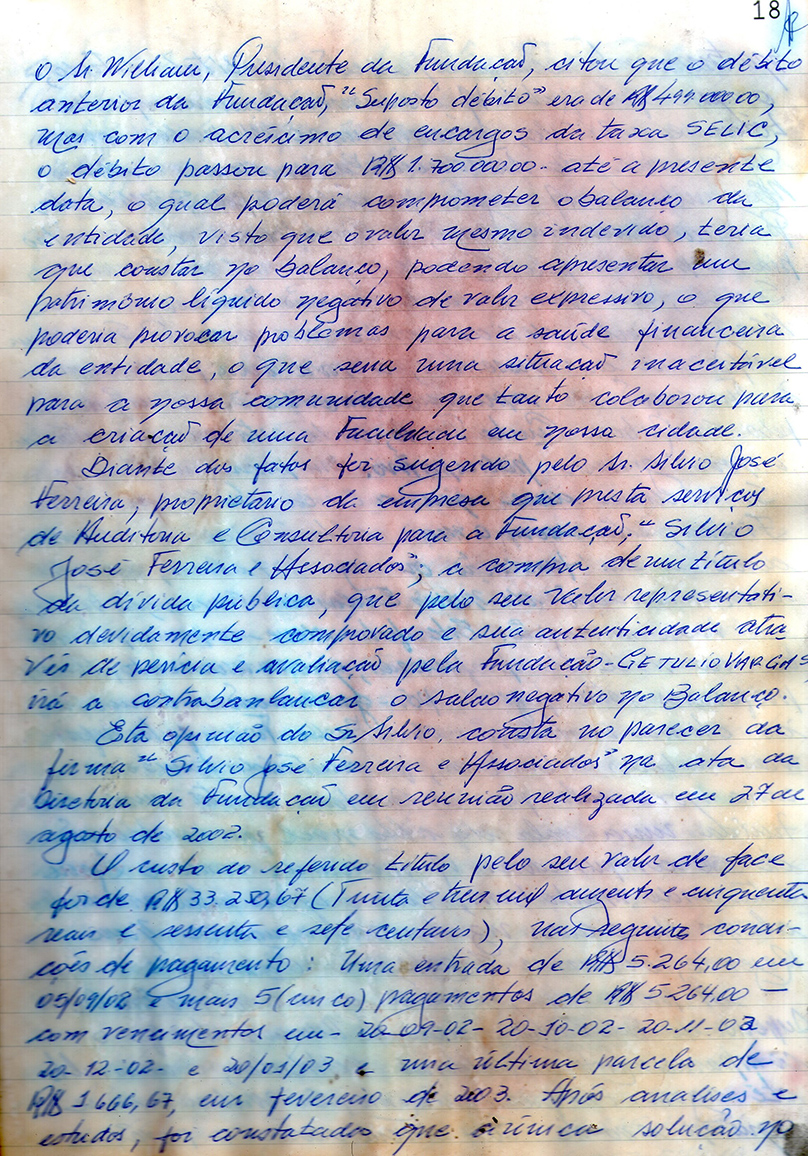 18
O Sr. William, Presidente da Fundação, citou que o débito
anterior da Fundação, "Suposto débito" era de R$ 499.000.00,
mas com o acréscimo de encargos da taxa SELIC,
o débito passou para R$ 1.700.000.00- até a presente
data, o qual poderá comprometer o balanço da
entidade, visto que o valor mesmo indevido, teria
que constar no balanço, podendo apresentar um
patrimômo líquido negativo de valor expressivo, o que
poderia provocar problemas para a saúde financeira
da entidade, o que seria uma situação inaceitável
para a nossa comunidade que tanto colaborou para
a criação de uma Faculdade em nossa cidade.
Diante dos fatos foi sugerido pelo Sr. Silvio José
Ferreira, proprietário da empresa que presta serviços
de Auditoria e Consultoria para a Fundação, "Silvio
José Ferreira e Associados"; a compra de um título
da dívida pública, que pelo seu valor representati-
vo devidamente comprovado e sua autenticidade atra
vés de perícia e avaliação pela Fundação-GETULIO VARGAS,
irá a contrabanlancar o saldo negativo no Balanço.
Esta opinião do Sr. Silvio, consta no parecer da
firma "Silvio José Ferreira e Associados" na ata da
Diretoria da Fundação em reunião realizada em 27 de
agosto de 2002.
O custo do referido título pelo seu valor de face
foi de R$ 33.250,67 (Trinta e tres mil duzentos e cinquenta
reais e sessenta e sete centavos), nas seguintes condi-
ções de pagamento: Uma entrada de R$ 5.264,00 em
05/09/02 e mais 5 (cinco) pagamentos de R$ 5264.00 —
com vencimentos em - 20-09-02- 20-10-02- 20-11-02
20-12-02- e 20/01/03 e uma última parcela de
R$ 1666,67, em fevereiro de 2003. Após analises e
estudos, foi constatados que a única solução no